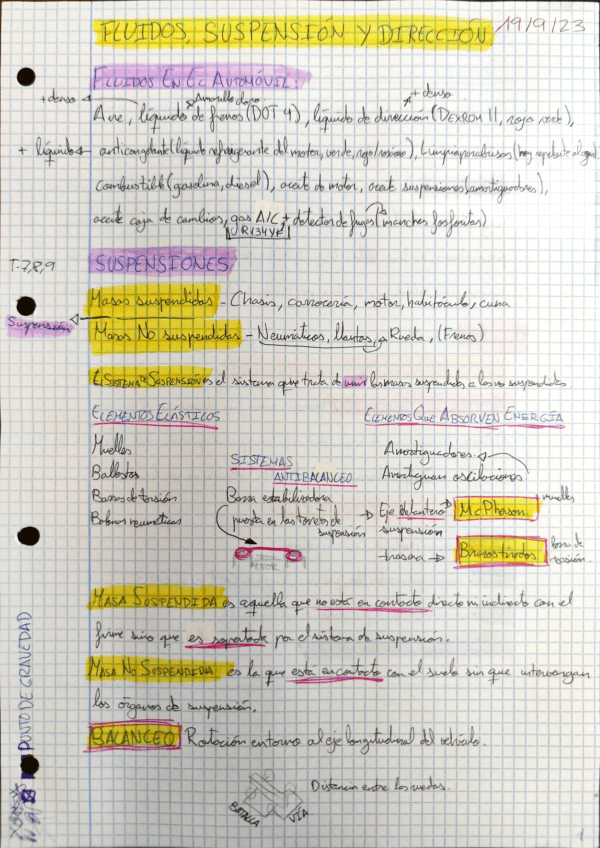 FLUIDOS, SUSPENSIÓN Y DIRECCIÓN 19/9/23
FLUIDOS EN EL AUTOMÓVIL:
+ denso Amarillo claro + denso
Aire, líquido de frenos (DOT 4), líquido de dirección (DEXRON II, rojo verde),
+ líquido anticongelante (líquido refrigerante del motor, verde, rojo/rosáceo), Limpiaparabrisas (hay repelente al agua)
Combustible (gasolina, diesel), aceite de motor, aceite suspensiones (amortiguadores),
aceite caja de cambios, gas A/C, + detector de fugas (manchas fosforitas)
R134YF
T-7,8,9 SUSPENSIONES
Masas suspendidas - Chasis, carrocería, motor, habitáculo, cuna
Suspensión
Masas No suspendidas - Neumáticos, llantas, Rueda, (Frenos)
El SISTEMA DE SUSPENSIÓN es el sistema que trata de unir las masas suspendidas a las no suspendidas
ELEMENTOS ELÁSTICOS ELEMENTOS QUE ABSORVEN ENERGÍA
Muelles Amortiguadores
Ballestas SISTEMAS Amortiguan oscilaciones
ANTIBALANCEO muelles
Barras de torsión Barra estabilizadora Eje delantero McPherson
Balonas neumáticas puesta en las torretas de suspensión suspensión
trasera Brazos tirados barra de torsión.
MOTOR
MASA SUSPENDIDA es aquella que no está en contacto directo ni indirecto con el
firme sino que es soportada por el sistema de suspensión.
MASA NO SUSPENDIDA es la que está en contacto con el suelo sin que intervengan
los órganos de suspensión.
BALANCEO Rotación entorno al eje longitudinal del vehículo.
PUNTO DE GRAVEDAD
Distancia entre las ruedas.
BATALLA VÍA
1